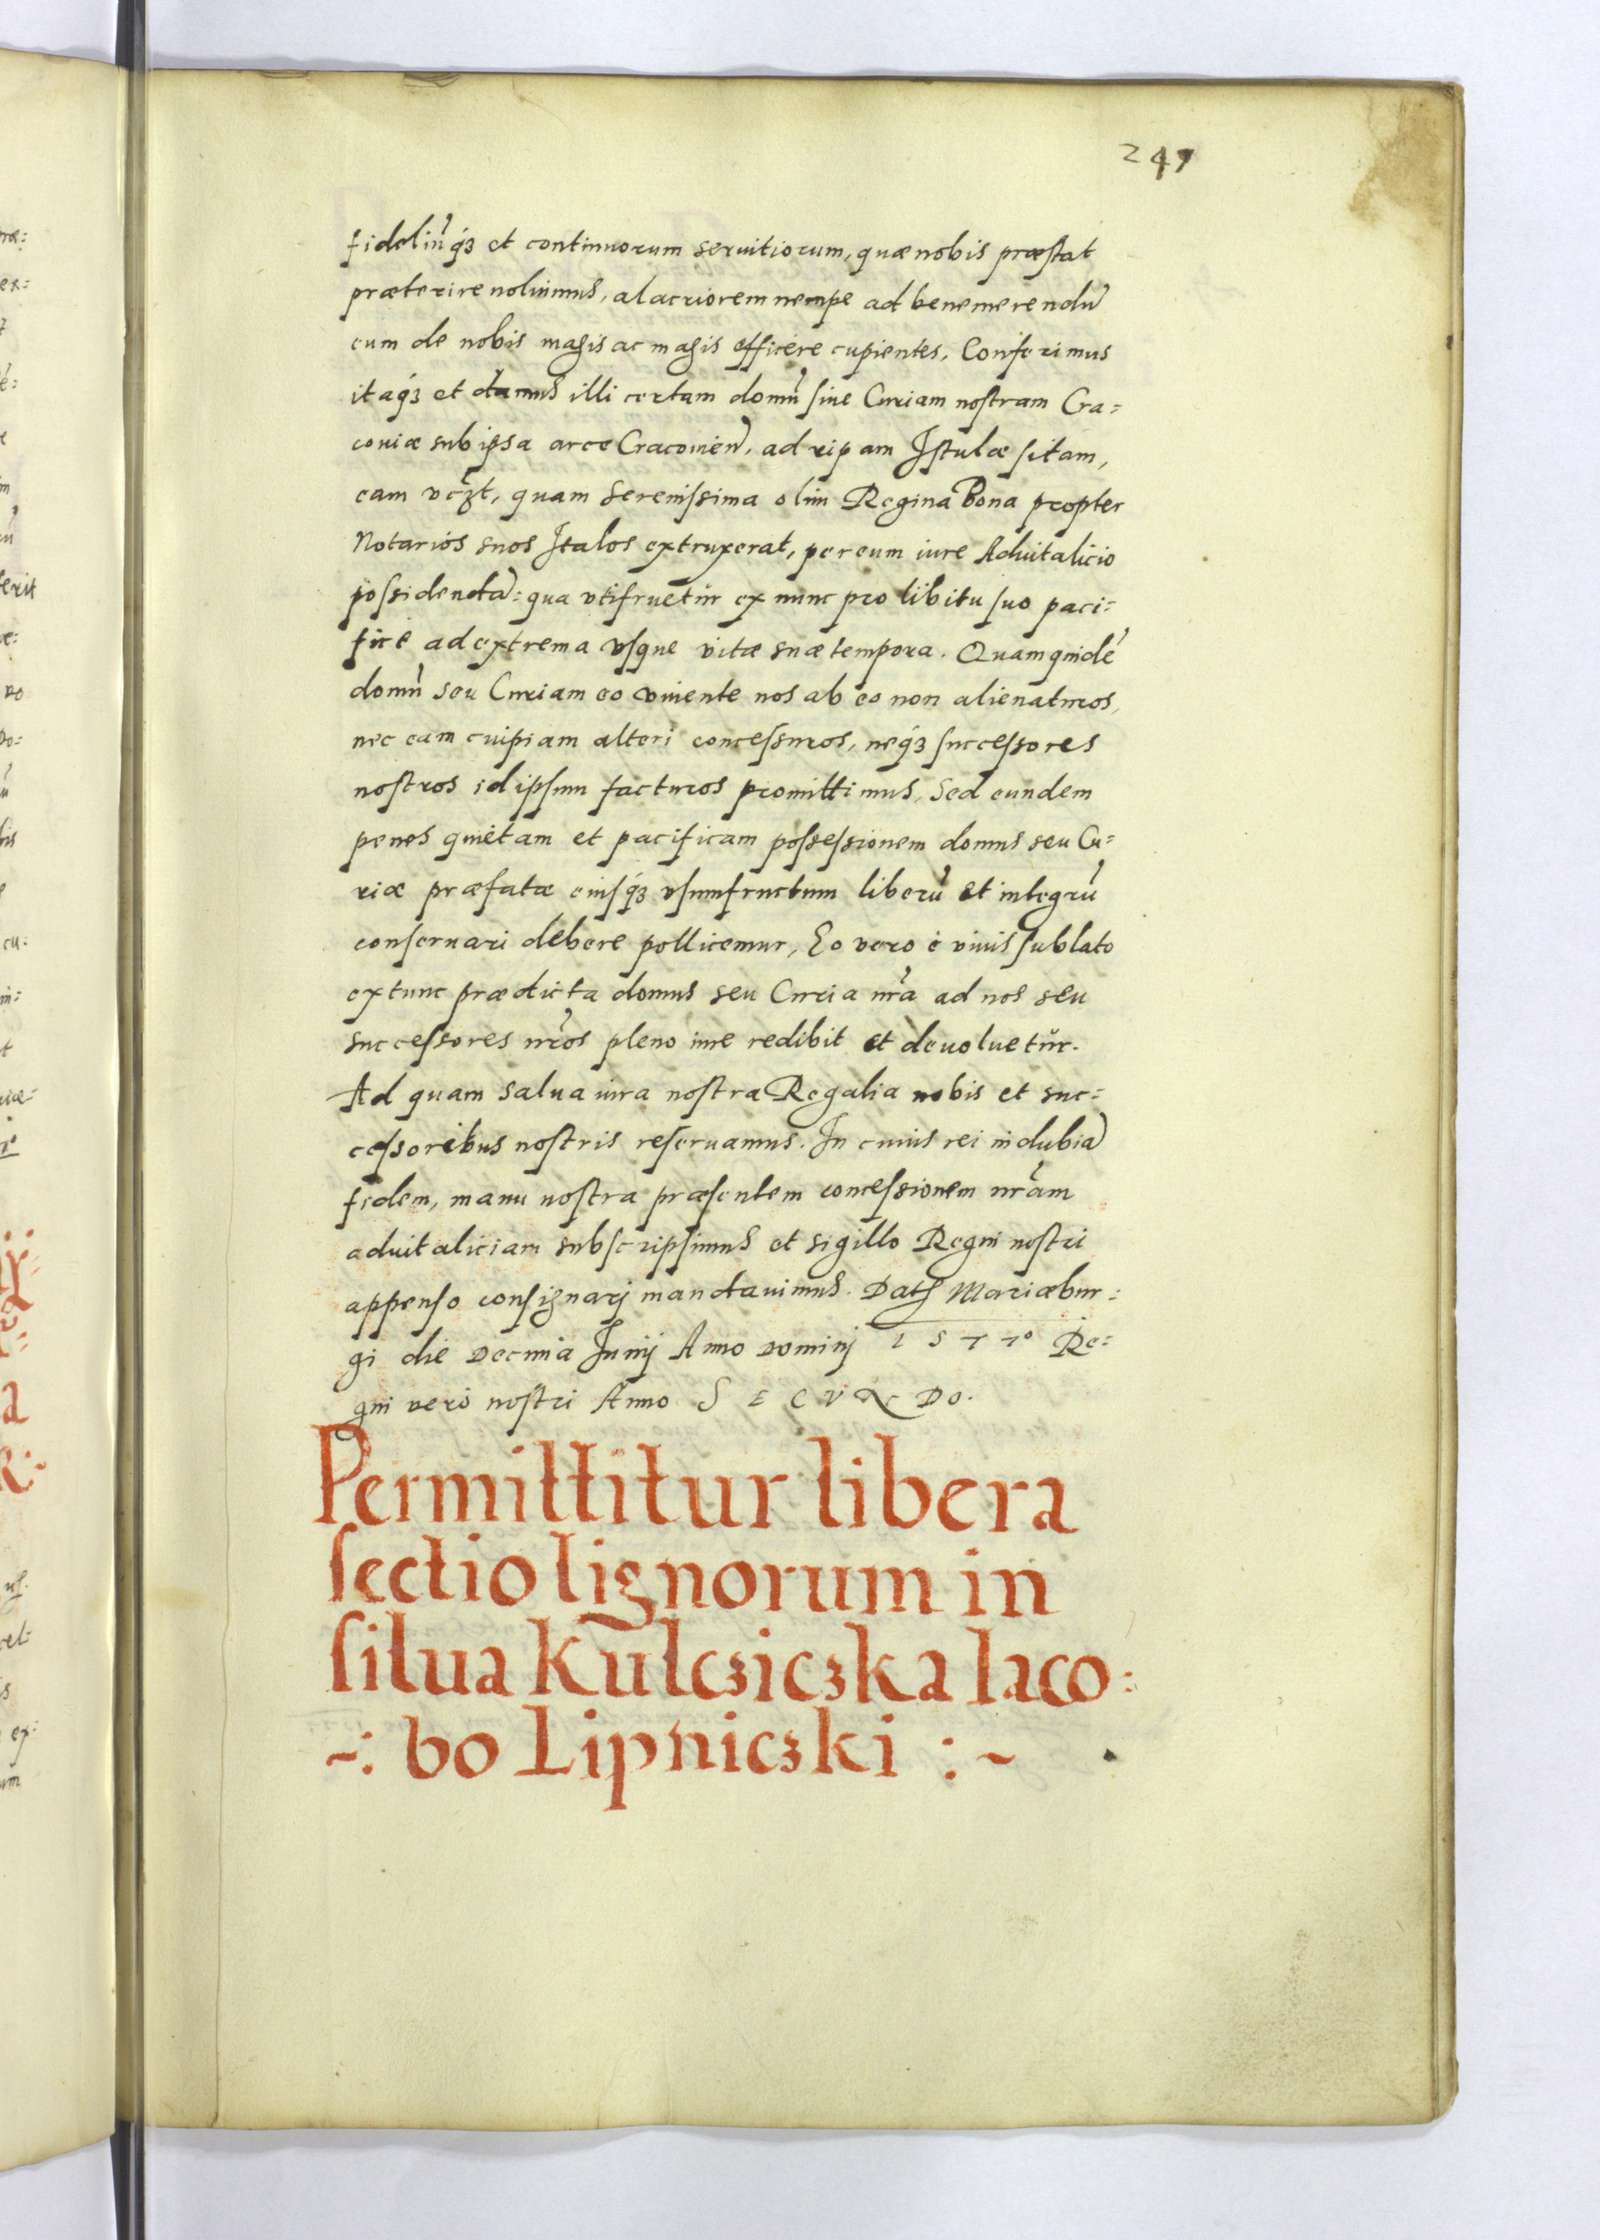 247
fideliũq́ꝫ et continuorum seruitiorum, quæ nobis præstat
præterire noluimus, alacriorem nempe ad benemerendũ
eum de nobis magis ac magis efficere cupientes. Conferimus
itaq́ꝫ et damus illi certam domũ siue Curiam nostram Cra=
couiæ sub ipsa arce Cracouień. ad ripam Istulæ sitam,
eam vcꝫt, quam Serenissima olim Regina Bona propter
Notarios suos Italos extruxerat, per eum iure Aduitalicio
possidendã: qua vtifruetur ex nunc pro libitu suo paci=
fice ad extrema vsque vitæ suæ tempora. Quamquidẽ
domũ seu Curiam eo viuente nos ab eo non alienaturos,
nec eam cuipiam alteri concessuros, neq́ꝫ successores
nostros id ipsum facturos promittimus, Sed eundem
penes quietam et pacificam possessionem domus seu Cu=
riæ præfatæ eiusq́ꝫ vsumfructum liberũ et integrũ
conseruari debere pollicemur, Eo vero è viuis sublato
extunc prædicta domus seu Curia nr̃a ad nos seu
successores nr̃os pleno iure redibit et deuoluetur.
Ad quam salua iura nostra Regalia nobis et suc=
cessoribus nostris reseruamus. In cuius rei indubiã
fidem, manu nostra præsentem concessionem nr̃am
aduitaliciam subscripsimus et sigillo Regni nostri
appenso consignarj mandauimus. Datꝭ Mariæbur=
gi die Decima Junij Anno Dominj 1577º Re=
gni vero nostri Anno SECVNDO.
Permittitur libera
sectio lignorum in
silua Kulcziczka Iaco:
~: bo Lipniczki :~